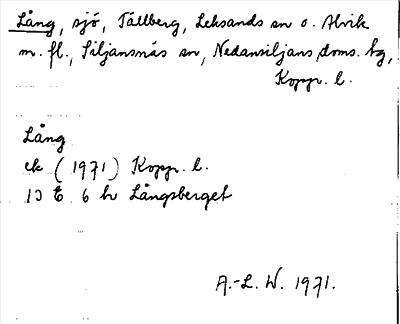 Lång, sjö, Tällberg, Leksands sn o. Alvik
m. fl., Siljansnäs sn, Nedansiljans doms. hg,
Kopp. l.
Lång
ek (1971) Kopp. l.
13 E 6 h Långsberget
A.-L. W. 1971.